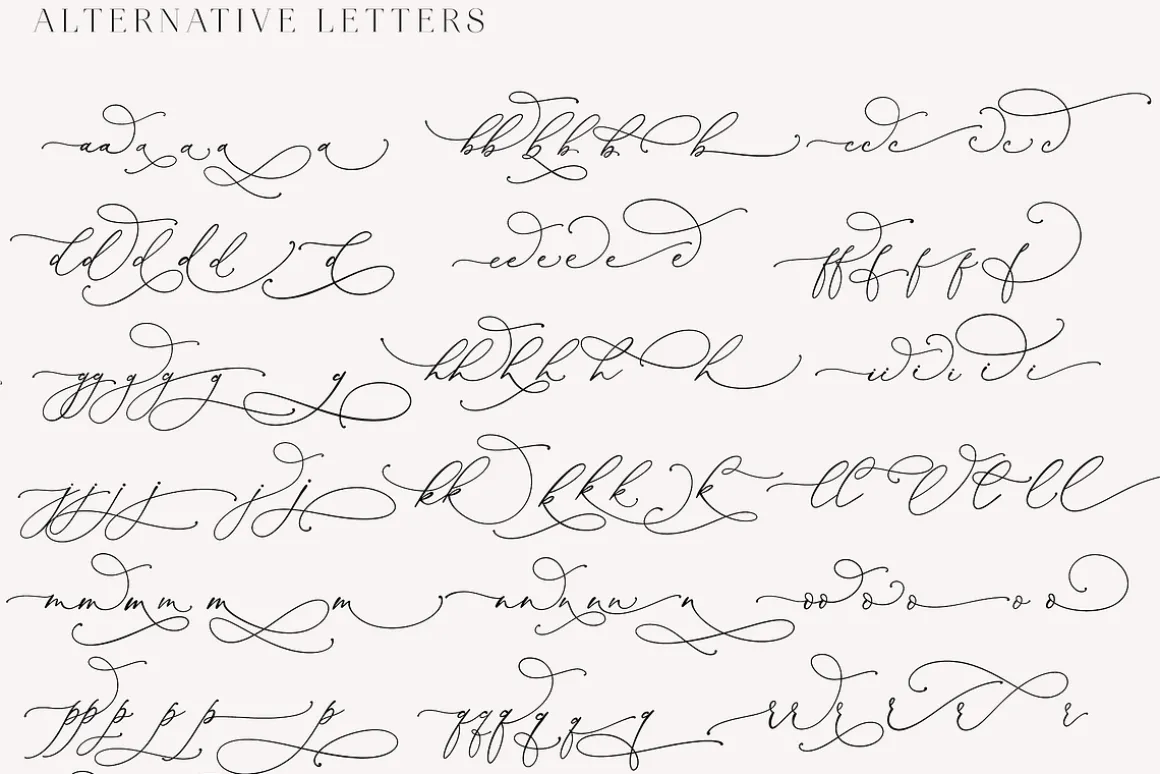 ALTERNATIVE LETTERS
aa a a a a bb b b b b cc c c c c
dd d d d d ee e e e e ff f f f f
gg g g g g hh h h h h ii i i i i
jj j j j j kk k k k k ll l l l l
mm m m m m nn n n n n oo o o o o
pp p p p p qq q q q q rr r r r r